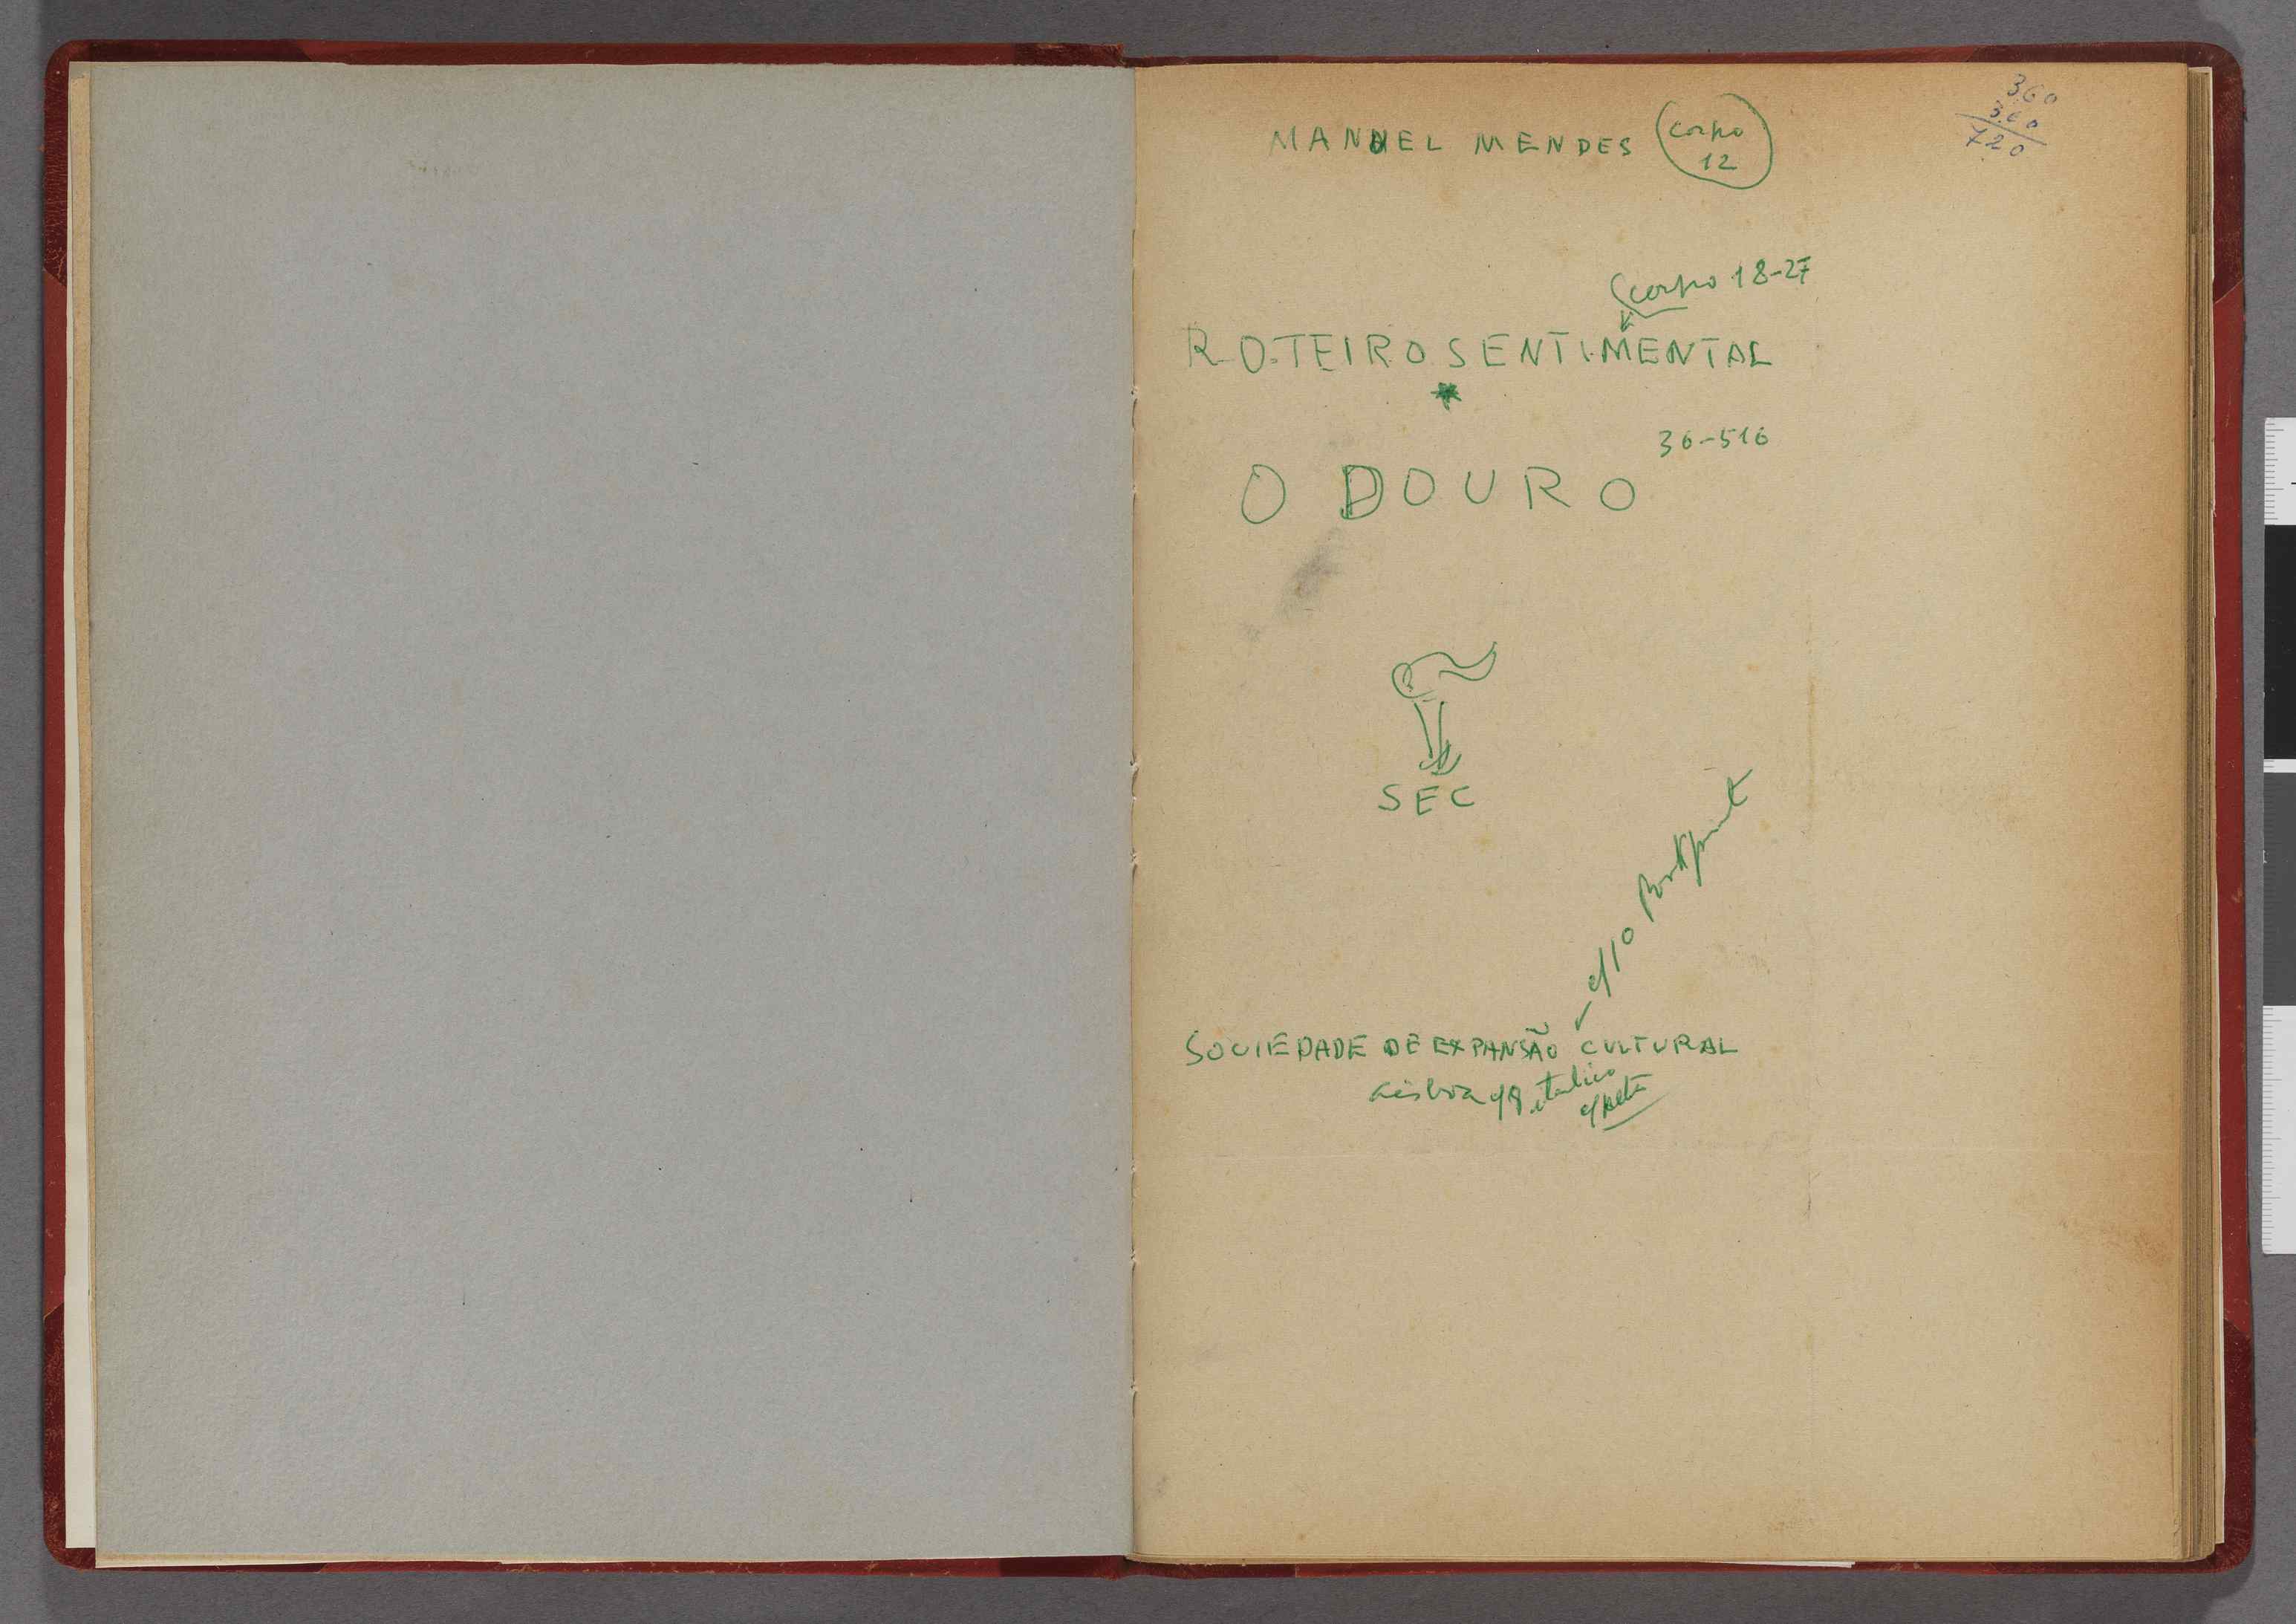 MANUEL MENDES corpo
12
360
360
720
corpo 18-27
ROTEIRO SENTIMENTAL
*
36-516
O DOURO
SEC
c/10
SOCIEDADE DE EXPANSÃO CULTURAL
Lisboa c/8 italico